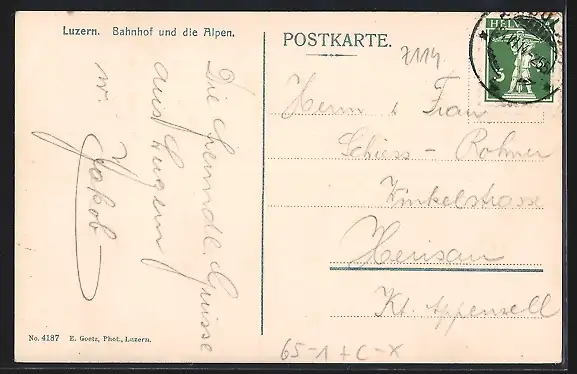 Luzern. Bahnhof und die Alpen.
POSTKARTE.
7114.
HELVETIA
5
Die freundl. Grüsse
aus Luzern
Jakob
Herrn & Frau
Schiess - Rohner
Winkelstrasse
Herisau
Kt. Appenzell
No. 4187 E. Goetz, Phot., Luzern.
65-1+C-X